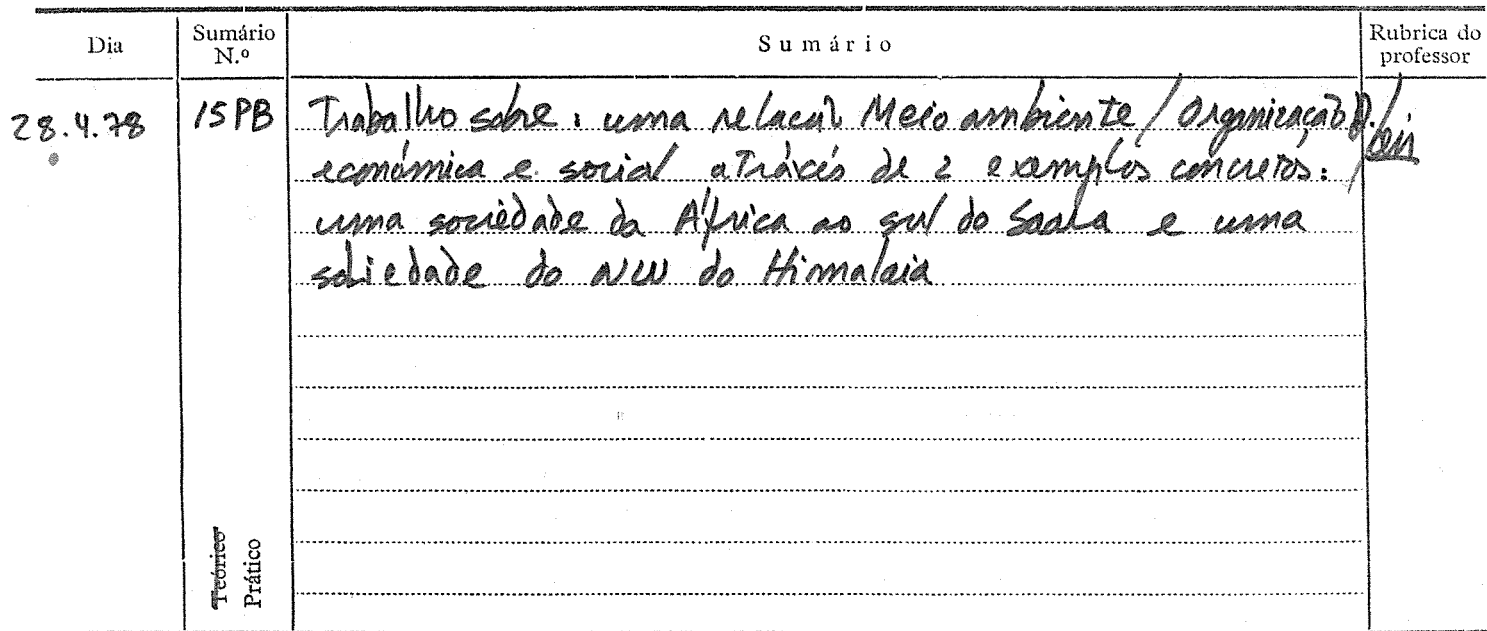 Dia Sumário N.º Sumário Rubrica do professor
28.4.78 15PB Trabalho sobre: uma relação Meio ambiente / Organização
económica e social através de 2 exemplos concretos:
uma sociedade da África ao sul do Saara e uma
sociedade do NW do Himalaia
Teórico
Prático